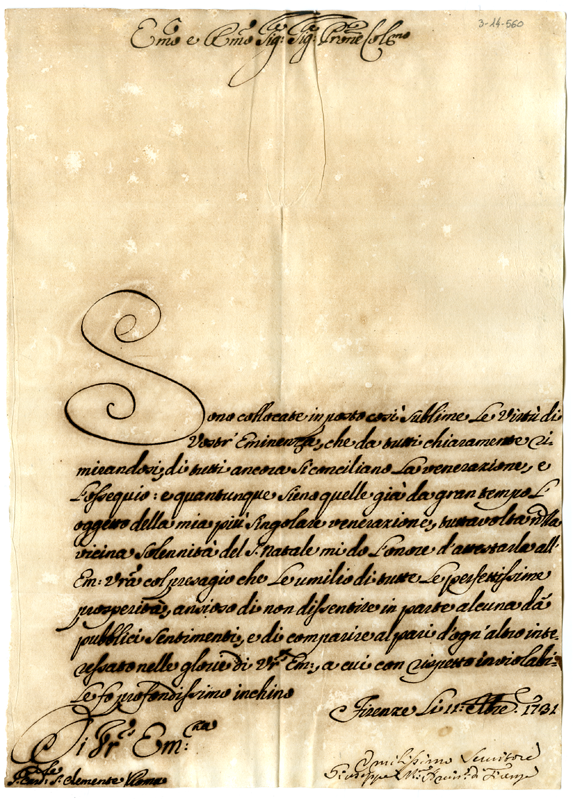 3-14-560
Em̃o e Rm̃o Sig: Sig: Pron̄e Col:mo
Sono collocate in posto così sublime Le Virtù di
Vostr' Eminenza, che da tutti chiaramente ri-
mirandosi, di tutti ancora si conciliano La venerazione, e
L'ossequio: e quantunque sieno quelle già da gran tempo L'
oggetto della mia più singolare venerazione, tuttavolta
vicina solennità del S. Natale mi do L'onore d'attestarla all'
Em: Vrã col presagio che Le umilio di tutte Le perfettissime
prosperità, ansioso di non dissentire in parte alcuna dã
pubblici sentimenti, e di comparire al pari d'ogn'altro inte-
ressato nelle glorie di Vr̃ Em:, a cui con rispetto inviolabi-
Le fo profondissimo inchino
Firenze Li 11: Xbre: 1731
Di Vr̃ Em:za
S. Clemente
Umilissimo Servitore
Giuseppe Mã di Firenze